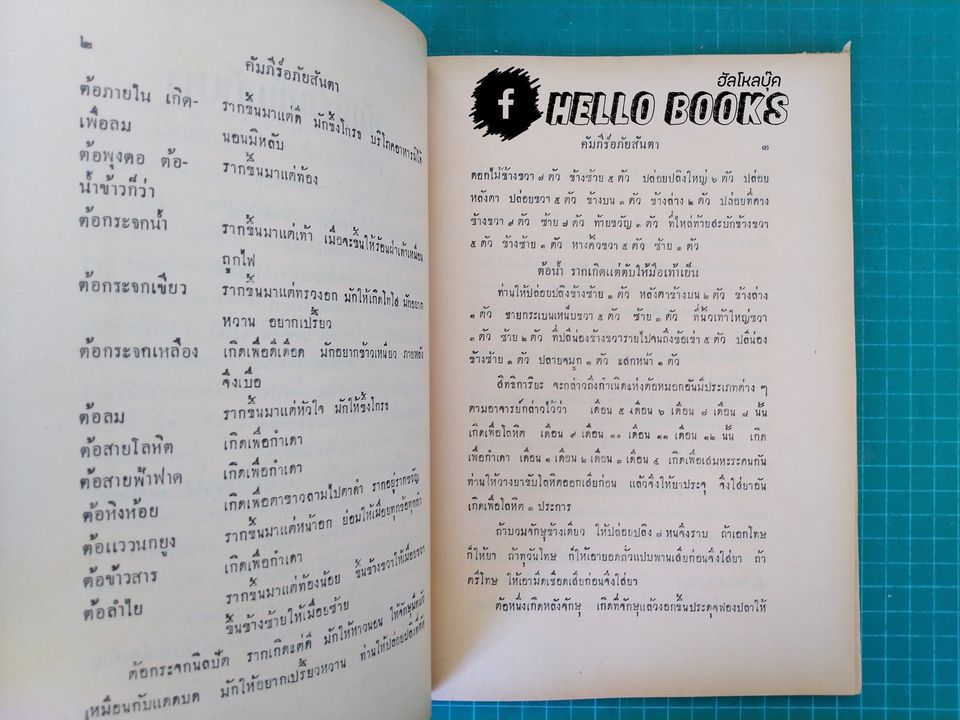 ๒
คัมภีร์อภัยสันตา
ต้อภายใน เกิด- รากขึ้นมาแต่ดี มักขึ้งโกรธ บริโภคอาหารมิได้
เพื่อลม นอนมิหลับ
ต้อพุงดอ ต้อ- รากขึ้นมาแต่ท้อง
น้ำข้าวก็ว่า
ต้อกระจกน้ำ รากขึ้นมาแต่เท้า เมื่อจะขึ้นให้ร้อนฝ่าเท้าเหมือน
ถูกไฟ
ต้อกระจกเขียว รากขึ้นมาแต่ทรวงอก มักให้เกิดโทโส มักอยาก
หวาน อยากเปรี้ยว
ต้อกระจกเหลือง เกิดเพื่อดีเดือด มักอยากข้าวเหนียว ภายหลัง
จึงเบื่อ
ต้อลม รากขึ้นมาแต่หัวใจ มักให้ขึ้งโกรธ
ต้อสายโลหิต เกิดเพื่อกำเดา
ต้อสายฟ้าฟาด เกิดเพื่อกำเดา
ต้อหิงห้อย เกิดเพื่อตาขาวลามไปตาดำ รากอยู่รากขวัญ
ต้อแววนกยูง รากขึ้นมาแต่หน้าอก ย่อมให้เมื่อยทุกข้อทุกลำ
ต้อข้าวสาร เกิดเพื่อกำเดา
ต้อลำไย รากขึ้นมาแต่ท้องน้อย ขึ้นข้างขวาให้เมื่อยขวา
ขึ้นข้างซ้ายให้เมื่อยซ้าย
ต้อกระจกนิลบัด รากเกิดแต่ดี มักให้หาวนอน ให้จักษุมืดมัว
เหมือนกับแดดบด มักให้อยากเปรี้ยวหวาน ท่านให้ปล่อยปลิงที่
ฮัลโหลบุ๊ค
f HELLO BOOKS
คัมภีร์อภัยสันตา ๓
ดอกไม้ข้างขวา ๗ ตัว ข้างซ้าย ๕ ตัว ปล่อยปลิงใหญ่ ๖ ตัว ปล่อย
หลังตา ปล่อยขวา ๕ ตัว ข้างบน ๓ ตัว ข้างล่าง ๒ ตัว ปล่อยที่คาง
ข้างขวา ๙ ตัว ซ้าย ๗ ตัว ท้ายขวัญ ๑ ตัว ที่ไหล่ท้ายสะบักข้างขวา
๕ ตัว ข้างซ้าย ๓ ตัว หางคิ้วขวา ๕ ตัว ซ้าย ๓ ตัว
ต้อน้ำ รากเกิดแต่ตับให้มือเท้าเย็น
ท่านให้ปล่อยปลิงข้างซ้าย ๓ ตัว หลังตาข้างบน ๒ ตัว ข้างล่าง
๑ ตัว ชายกระเบนเหน็บขวา ๕ ตัว ซ้าย ๓ ตัว ที่นิ้วเท้าใหญ่ขวา
๓ ตัว ซ้าย ๒ ตัว ที่ปลีน่องข้างขวารายไปจนถึงข้อเข่า ๕ ตัว ปลีน่อง
ข้างซ้าย ๓ ตัว ปลายจมูก ๑ ตัว แสกหน้า ๑ ตัว
สิทธิการิยะ จะกล่าวถึงกำเนิดแห่งต้อหมอกอันมีประเภทต่าง ๆ
ตามอาจารย์กล่าวไว้ว่า เดือน ๕ เดือน ๖ เดือน ๗ เดือน ๘ นั้น
เกิดเพื่อโลหิต เดือน ๙ เดือน ๑๐ เดือน ๑๑ เดือน ๑๒ นั้น เกิด
เพื่อกำเดา เดือน ๑ เดือน ๒ เดือน ๓ เดือน ๔ เกิดเพื่อเสมหะระคนกัน
ท่านให้วางยาขับโลหิตออกเสียก่อน แล้วจึงให้ยาประจุ จึงใส่ยาอัน
เกิดเพื่อโลหิต ๑ ประการ
ถ้าบวมจักษุข้างเดียว ให้ปล่อยปลิง ๗ หนจึงราบ ถ้าเอกโทษ
ก็ให้ยา ถ้าทุวันโทษ ก็ให้เอายอดถั่วแปบพานเสียก่อนจึงใส่ยา ถ้า
ตรีโทษ ให้เอามีดเชือดเสียก่อนจึงใส่ยา
ต้อหนึ่งเกิดหลังจักษุ เกิดที่จักษุแล้วงอกขึ้นประดุจฟองปลาให้